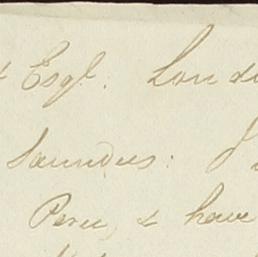 & Esqr. Londo
Saunders: I
Peru, & have